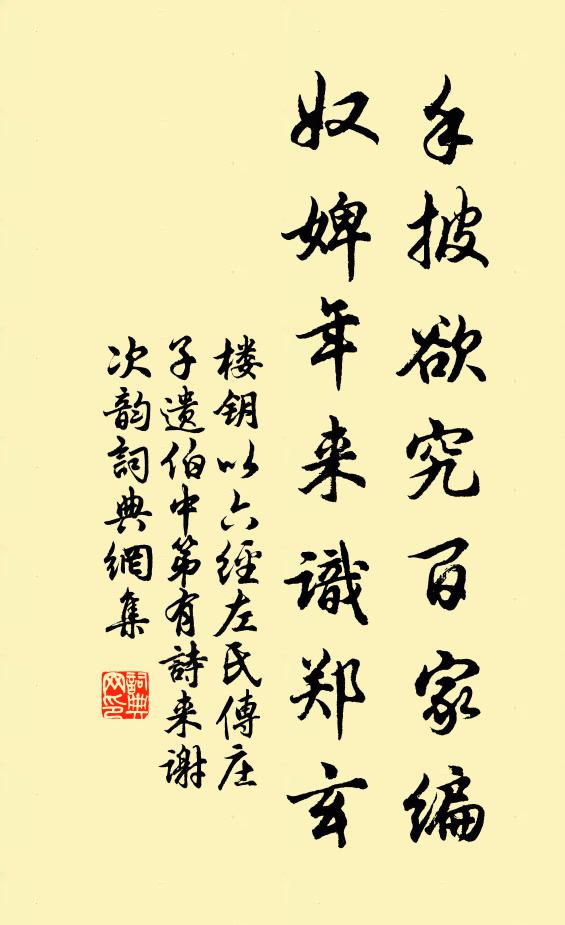 手披欲究百家编
奴婢年来识郑玄
楼钥以六經左氏傳庄
子遗伯中第有詩来谢
次韵詞典網集
詞典網印